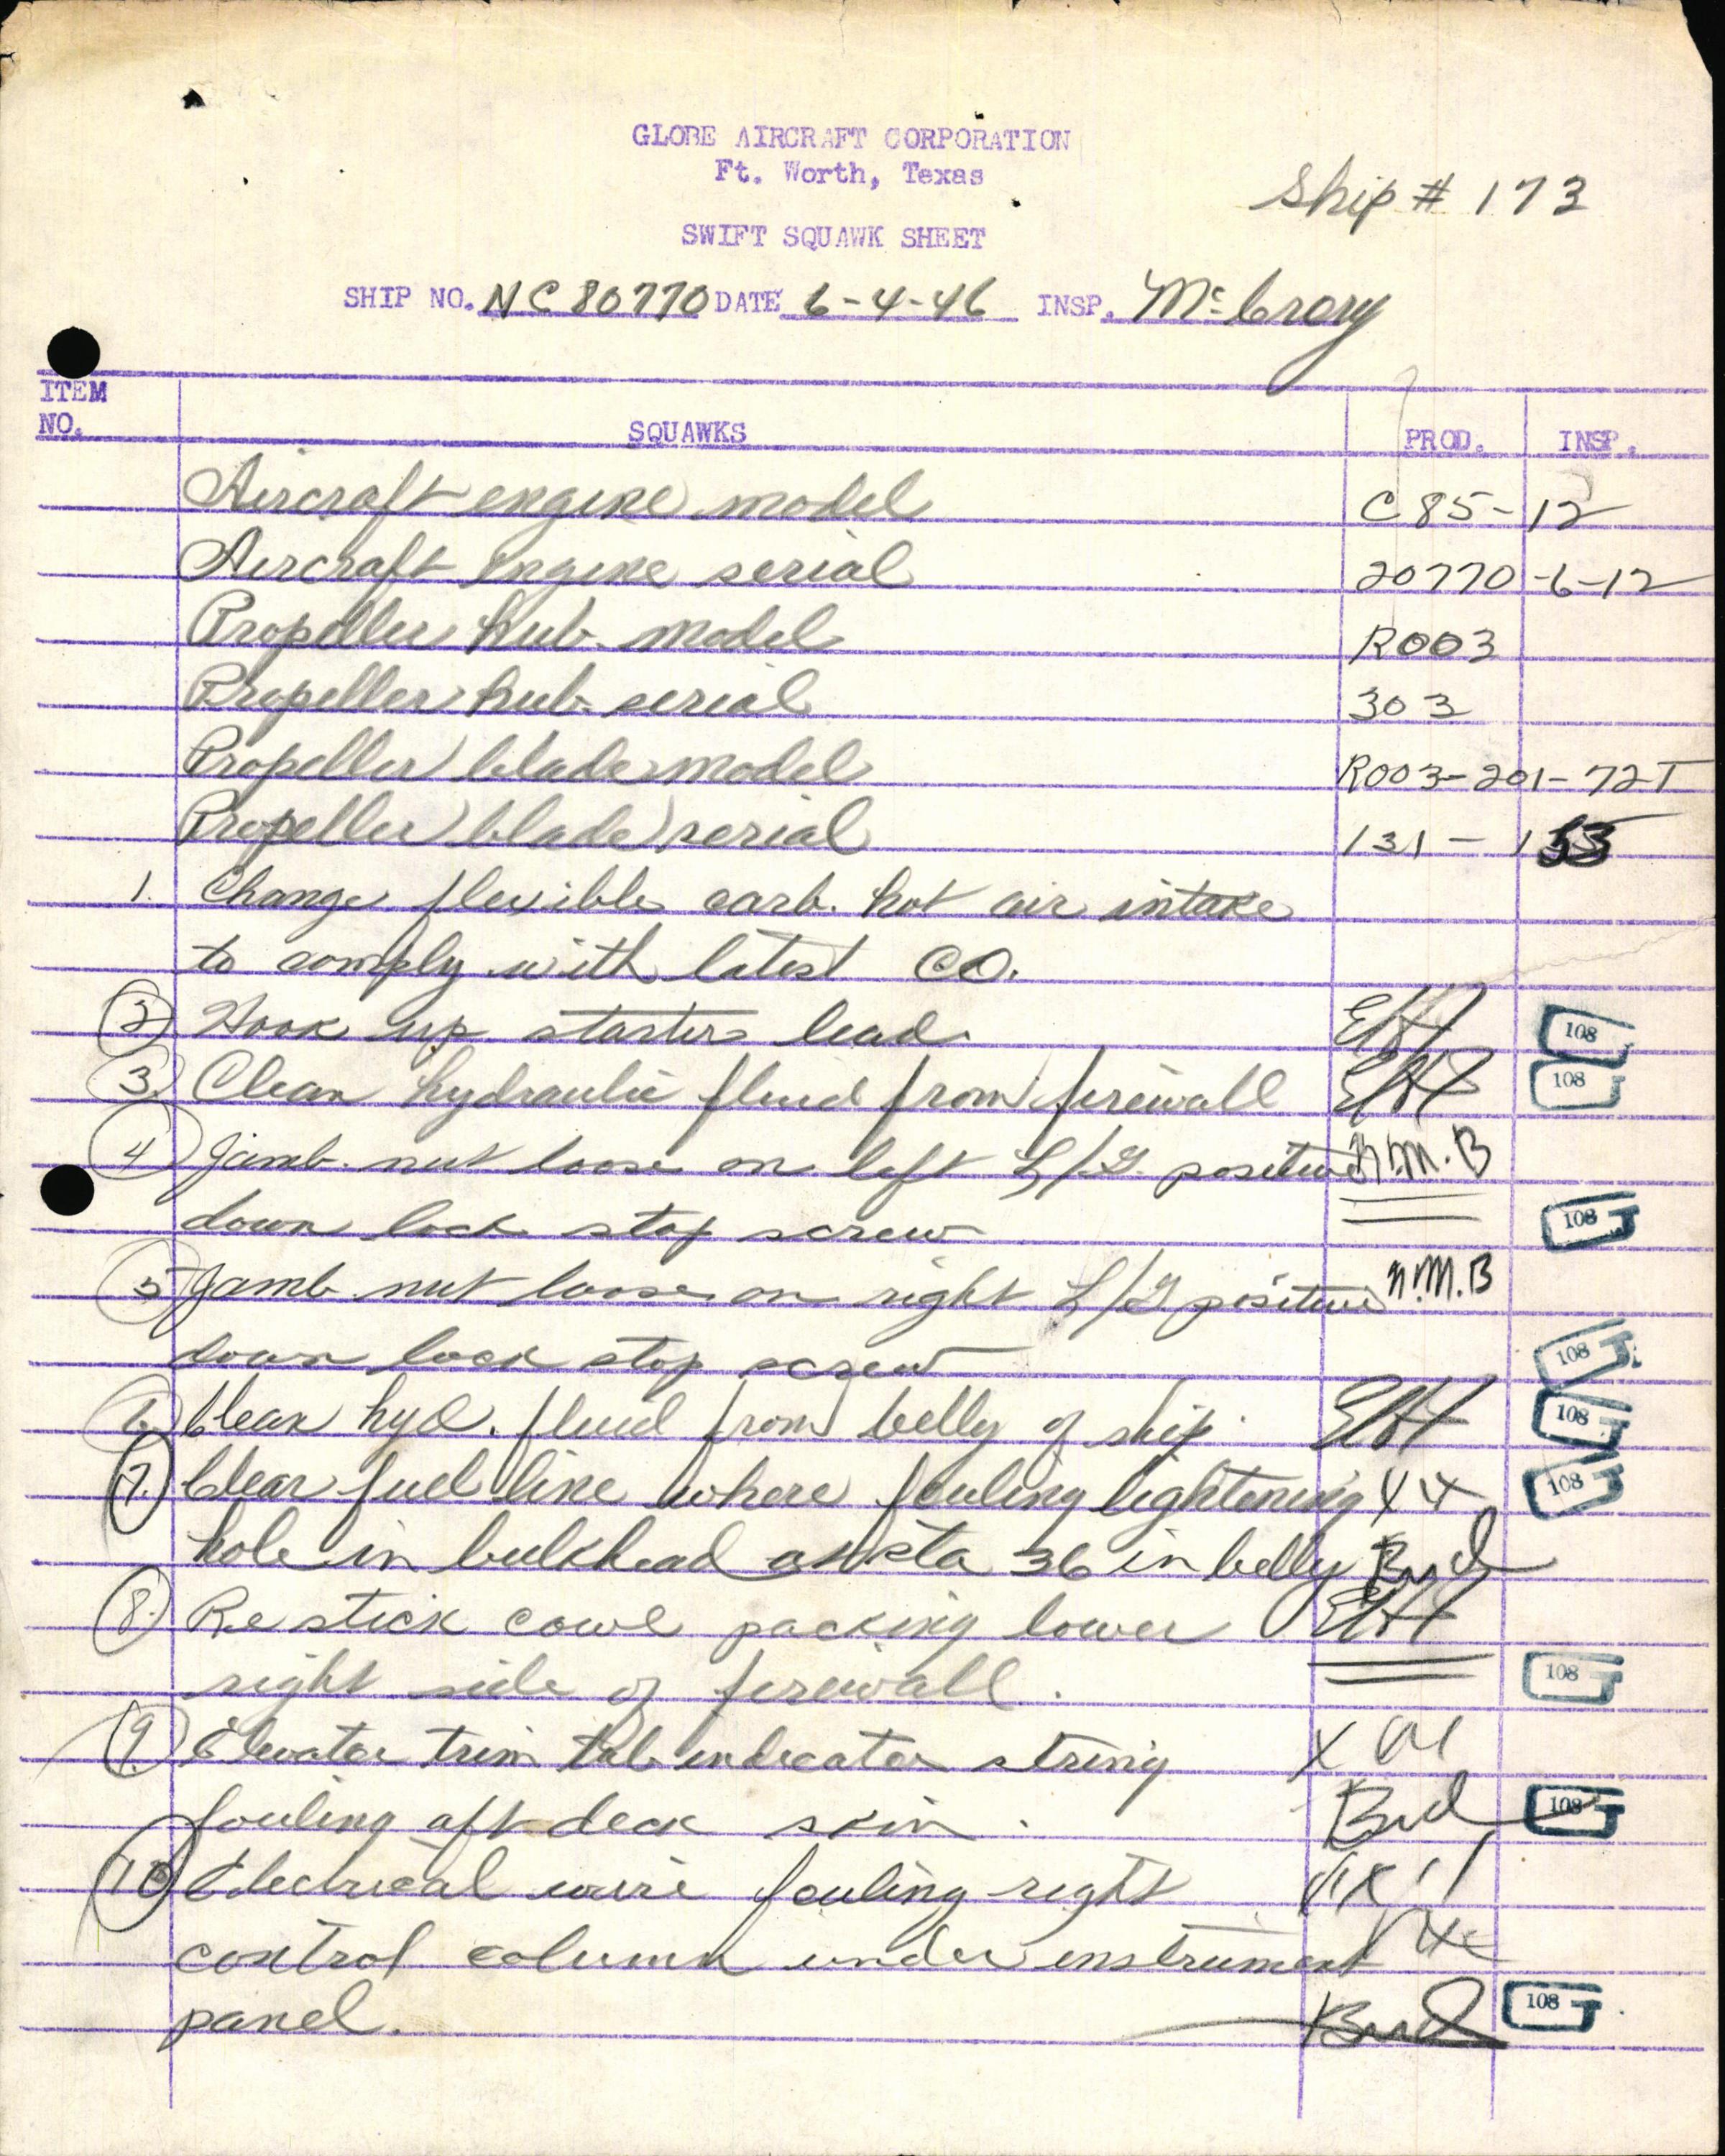 GLOBE AIRCRAFT CORPORATION
Ft. Worth, Texas
Ship # 173
SWIFT SQUAWK SHEET
SHIP NO. NC80770 DATE 6-4-46 INSP. McCrory
ITEM NO. SQUAWKS PROD. INSP.
Aircraft engine model C85-12
Aircraft engine serial 20770-6-12
Propeller hub model R003
Propeller hub serial 303
Propeller blade model R003-201-72T
Propeller blade serial 131 - 135
1. Change flexible carb. hot air intake
to comply with latest CO.
2. Hook up starter lead. 108
3. Clean hydraulic fluid from firewall 108
4. Jamb nut loose on left L/G positive N.M.B
down lock stop screw 108
5. Jamb nut loose on right L/G positive N.M.B
down lock stop screw 108
6. Clean hyd. fluid from belly of ship. 108
7. Clear fuel line where fouling lightening 108
hole in bulkhead at sta 36 in belly Bud
8. Re stick cowl packing lower
right side of firewall. 108
9. Elevator trim tab indicator string
fouling aft deck skin. Bud 108
10. Electrical wire fouling right
control column under instrument
panel. Bud 108